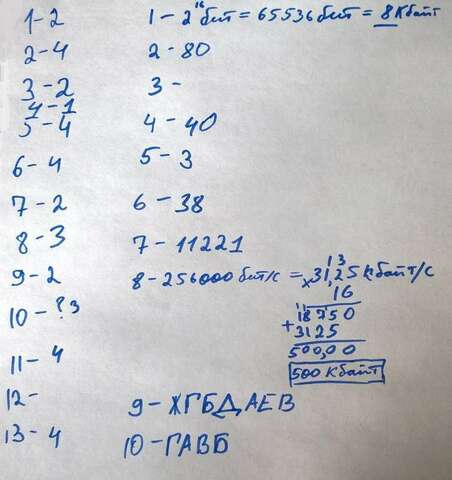 1-2
2-4
3-2
4-1
5-4
6-4
7-2
8-3
9-2
10-?3
11-4
12-
13-4
1-2¹⁶бит = 65536бит = 8Кбайт
2-80
3-
4-40
5-3
6-38
7-11221
8-256000бит/с = 31,25 кбайт/с
1 3
× 16
11
18750
+3125
500,00
500 Кбайт
9-ЖГБДАЕВ
10-ГАВБ